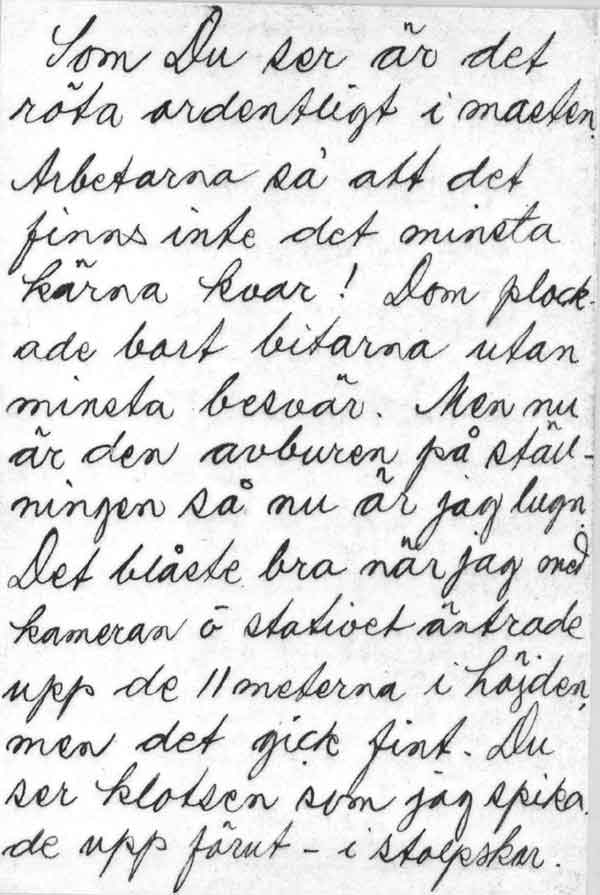 Som Du ser är det
röta ordentligt i masten.
Arbetarna sa att det
finns inte det minsta
kärna kvar! Dom plock-
ade bort bitarna utan
minsta besvär. Men nu
är den avburen på ställ-
ningen så nu är jag lugn.
Det blåste bra när jag med
kameran ö stativet äntrade
upp de 11 meterna i höjden,
men det gick fint. Du
ser klotsen som jag spika-
de upp förut - i stolpskar.